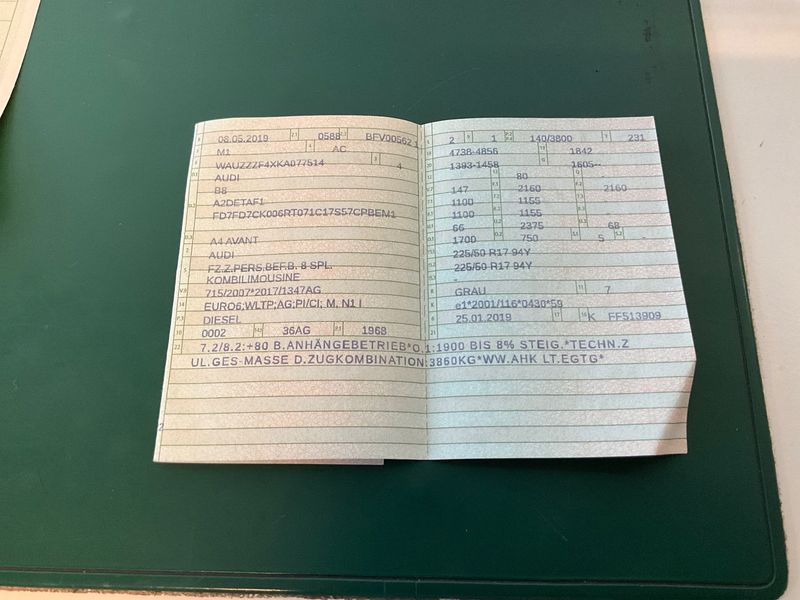 08.05.2019 0588 BFV00562 1
M1 AC
WAUZZZF4XKA077514 4
AUDI
B8
A2DETAF1
FD7FD7CK006RT071C17S57CPBEM1
A4 AVANT
AUDI
FZ.Z.PERS.BEF.B. 8 SPL.
KOMBILIMOUSINE
715/2007*2017/1347AG
EURO6;WLTP;AG;PI/CI; M, N1 I
DIESEL
0002 36AG 1968
2 1 140/3800 231
4738-4856 1842
1393-1458 1605--
80 -
147 2160 2160
1100 1155 -
1100 1155 -
66 2375 68
1700 750 5 -
225/50 R17 94Y
225/50 R17 94Y
-
GRAU 7
e1*2001/116*0430*59
25.01.2019 K FF513909
22 7.2/8.2:+80 B.ANHÄNGEBETRIEB*O.1:1900 BIS 8% STEIG.*TECHN.Z
UL.GES-MASSE D.ZUGKOMBINATION:3860KG*WW.AHK LT.EGTG*
2